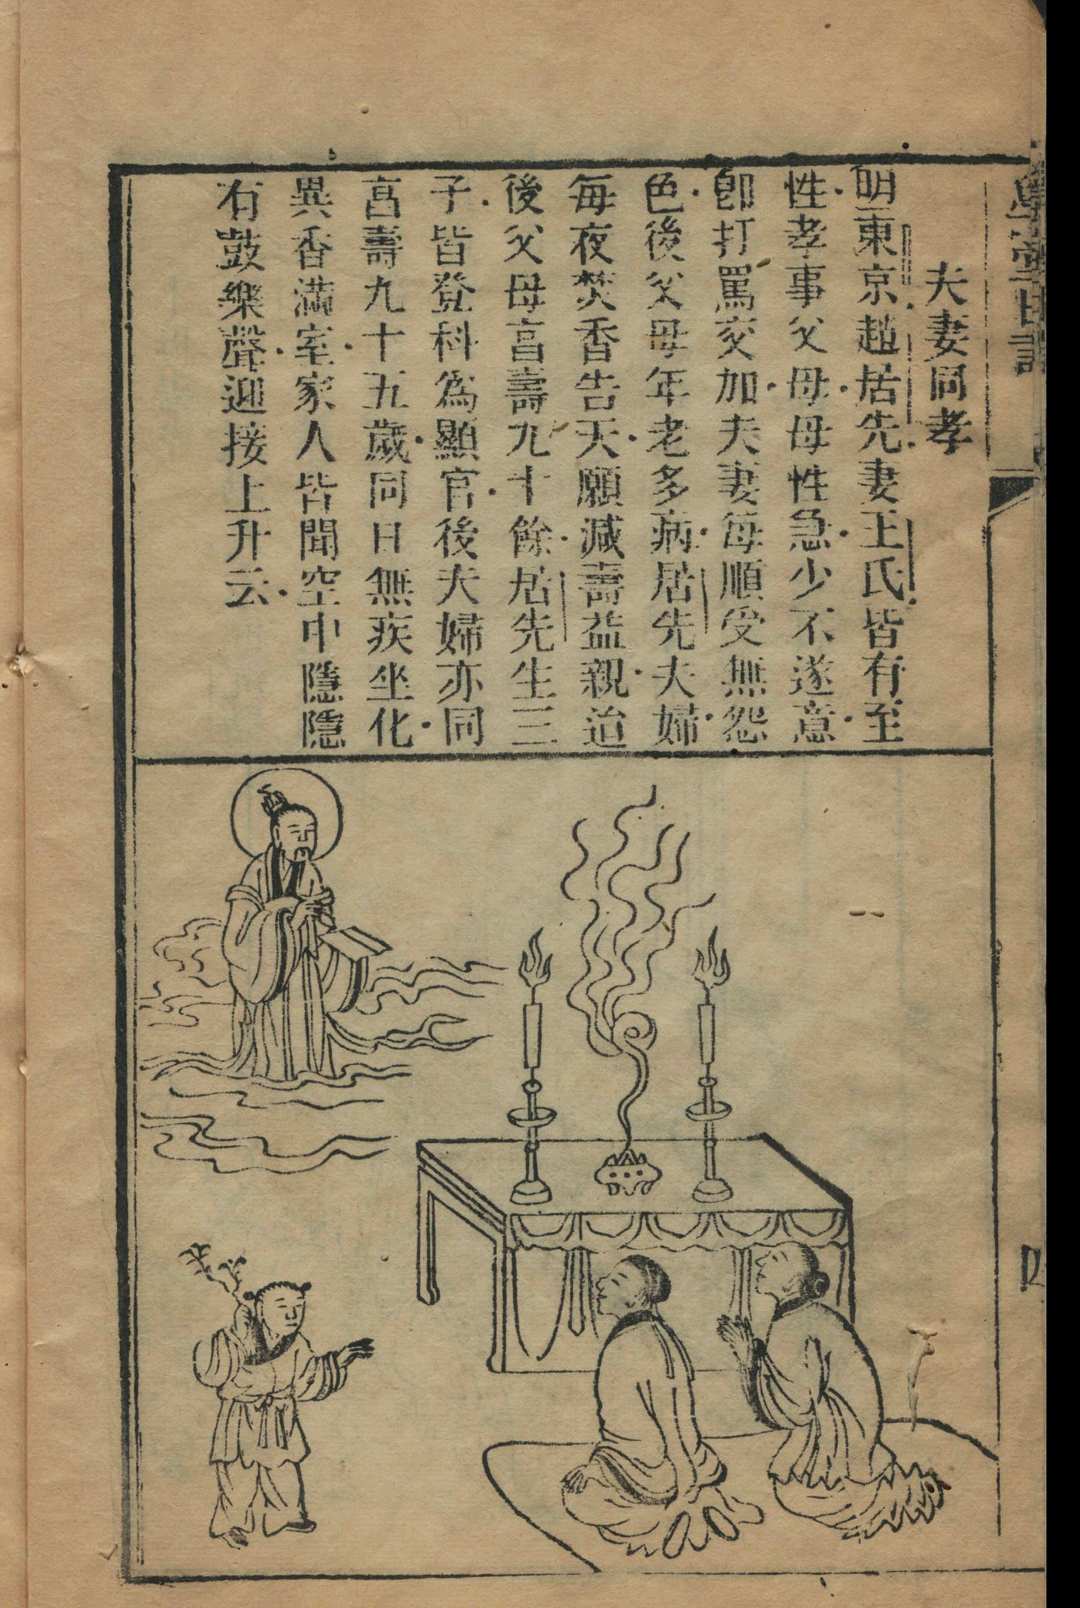 夫妻同孝
明東京趙居先妻王氏皆有至
性孝事父母母性急少不遂意
即打罵交加夫妻每順受無怨
色後父母年老多病居先夫婦
每夜焚香告天願減壽益親迨
後父母亯壽九十餘居先生三
子皆登科為顯官後夫婦亦同
亯壽九十五歲同日無疾坐化
異香滿室家人皆聞空中隱隱
有鼓樂聲迎接上升云